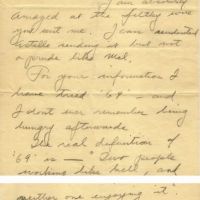 I am absolutely
amazed at the filthy wire
you sent me. I can understand
Estelle sending it but not
a prude like Mal.
For your information I
have tried "69" and
I dont ever remember being
hungry afterwards.
The real definition of
"69" is — "Two people
working like hell, and
neither one enjoying it"